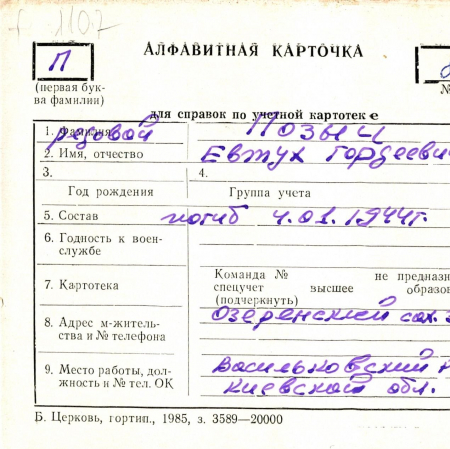 1107
П
АЛФАВИТНАЯ КАРТОЧКА
(первая бук-
ва фамилии)
№
для справок по учетной картотеке
1. Фамилия
рядовой Позыч
2. Имя, отчество Евтух Гордеевич
3. 4.
Год рождения Группа учета
5. Состав погиб 4.01.1944г.
6. Годность к воен-
службе
7. Картотека
Команда № не предназн
спецучет высшее образов
(подчеркнуть)
8. Адрес м-житель-
ства и № телефона
Озерянский сах.
9. Место работы, дол-
жность и № тел. ОК
Васильковский
Киевской обл.
Б. Церковь, гортип., 1985, з. 3589—20000